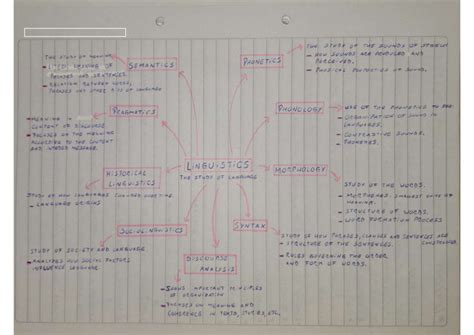 LINGUISTICS
THE STUDY OF LANGUAGE
PHONETICS
THE STUDY OF THE SOUNDS OF SPEECH
- HOW SOUNDS ARE PRODUCED AND
PERCEIVED.
- PHYSICAL PROPERTIES OF SOUND.
PHONOLOGY
- USE OF THE PHONETICS TO
ORGANIZATION OF SOUND IN
LANGUAGES.
- CONTRASTIVE SOUNDS.
- PHONEMES.
MORPHOLOGY
STUDY OF THE WORDS.
- MORPHEMES, SMALLEST UNITS OF
MEANING
- STRUCTURE OF WORDS.
- WORD FORMATION PROCESS
SYNTAX
STUDY OF HOW PHRASES, CLAUSES AND SENTENCES ARE
- STRUCTURE OF THE SENTENCES.
- RULES GOVERNING THE ORDER
AND FORM OF WORDS.
DISCOURSE
ANALYSIS
IMPORTANT PRINCIPLES
OF ORGANIZATION
- FOCUSES ON MEANING AND
COHERENCE IN TEXTS, STORIES, ETC.
SOCIOLINGUISTICS
STUDY OF SOCIETY AND LANGUAGE.
- ANALYZES HOW SOCIAL FACTORS
INFLUENCE LANGUAGE.
HISTORICAL
LINGUISTICS
STUDY OF HOW LANGUAGES CHANGED OVERTIME.
- LANGUAGE ORIGINS
PRAGMATICS
- MEANING IN
CONTEXT OR DISCOURSE
- FOCUSES ON THE MEANING
ACCORDING TO THE CONTEXT
AND MESSAGE.
SEMANTICS
THE STUDY OF MEANING.
- MEANING OF
PHRASES AND SENTENCES.
- RELATION BETWEEN WORDS,
PHRASES AND OTHER BITS OF LANGUAGE